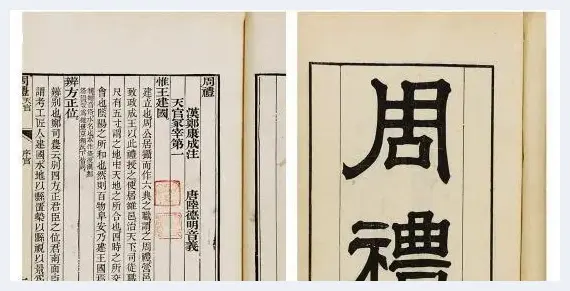 周禮
漢鄭康成注 唐陸德明音義
天官冢宰第一
惟王建國
建立也周公居攝而作六典之職謂之周禮營邑
致政成王以此禮授之使居雒邑治天下司徒職
尺有五寸謂之地中天地之所合也四時之所交
會也陰陽之所和也然則百物阜安乃建王國
辨方正位
辨別也鄭司農云別四方正君臣之位君南面臣
謂考工匠人建國水地以縣置槷以縣視以景
周禮天官
序官
周禮